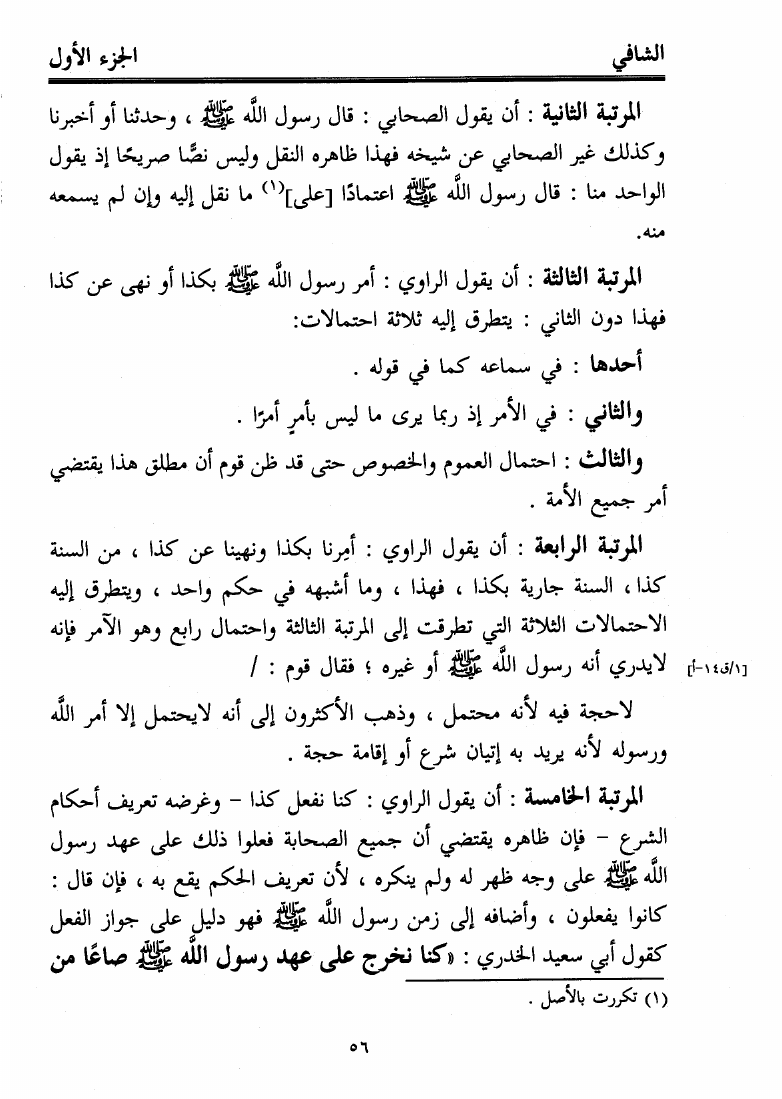 الشافي
الجزء الأول
المرتبة الثانية : أن يقول الصحابي : قال رسول اللَّه ﷺ ، وحدثنا أو أخبرنا
وكذلك غير الصحابي عن شيخه فهذا ظاهره النقل وليس نصًّا صريحًا إذ يقول
الواحد منا : قال رسول اللَّه ﷺ اعتمادًا [على](١) ما نقل إليه وإن لم يسمعه
منه.
المرتبة الثالثة : أن يقول الراوي : أمر رسول اللَّه ﷺ بكذا أو نهى عن كذا
فهذا دون الثاني : يتطرق إليه ثلاثة احتمالات:
أحدها : في سماعه كما في قوله .
والثاني : في الأمر إذ ربما يرى ما ليس بأمرٍ أمرًا .
والثالث : احتمال العموم والخصوص حتى قد ظن قوم أن مطلق هذا يقتضي
أمر جميع الأمة .
المرتبة الرابعة : أن يقول الراوي : أمِرنا بكذا ونهينا عن كذا ، من السنة
كذا ، السنة جارية بكذا ، فهذا ، وما أشبهه في حكم واحد ، ويتطرق إليه
الاحتمالات الثلاثة التي تطرقت إلى المرتبة الثالثة واحتمال رابع وهو الآمر فإنه
لايدري أنه رسول اللَّه ﷺ أو غيره ؛ فقال قوم : /
[١/ق١٤-أ]
لاحجة فيه لأنه محتمل ، وذهب الأكثرون إلى أنه لايحتمل إلا أمر اللَّه
ورسوله لأنه يريد به إتيان شرع أو إقامة حجة .
المرتبة الخامسة : أن يقول الراوي : كنا نفعل كذا – وغرضه تعريف أحكام
الشرع – فإن ظاهره يقتضي أن جميع الصحابة فعلوا ذلك على عهد رسول
اللَّه ﷺ على وجه ظهر له ولم ينكره ، لأن تعريف الحكم يقع به ، فإن قال :
كانوا يفعلون ، وأضافه إلى زمن رسول اللَّه ﷺ فهو دليل على جواز الفعل
كقول أبي سعيد الخدري : «كنا نخرج على عهد رسول اللَّه ﷺ صاعًا من
(١) تكررت بالأصل .
٥٦